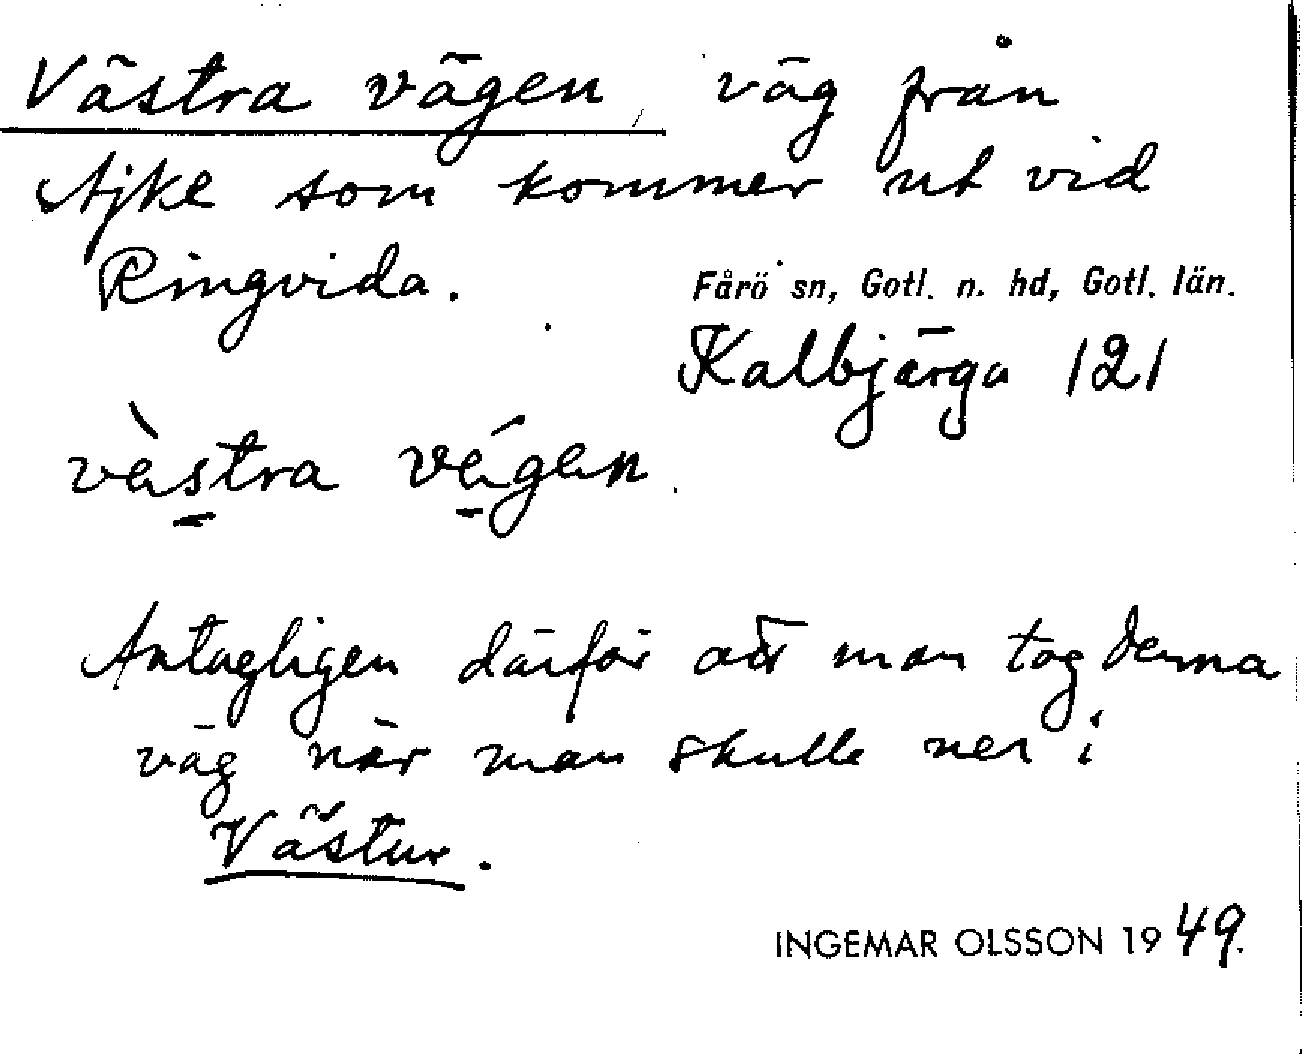 Västra vägen, väg från
Ajke som kommer ut vid
Ringvida.
Fårö sn, Gotl. n. hd, Gotl. län.
Kalbjärga 121
vèstra végen.
Antagligen därför att man tog denna
väg när man skulle ner i
Västur.
INGEMAR OLSSON 1949.